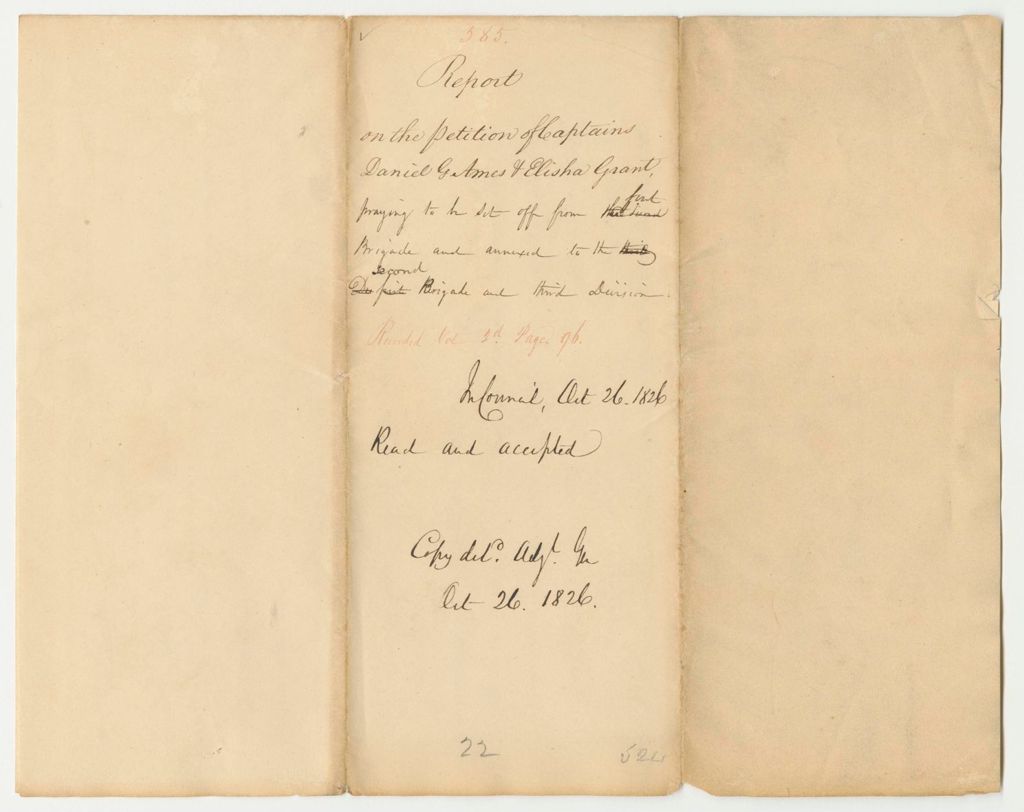 585.
Report
on the petition of Captains
Daniel G Ames & Elisha Grant,
first
praying to be set off from
Brigade and annexed to the third
second
Brigade and third Division.
Recorded Vol 3d. Page 96.
In Council, Oct 26. 1826
Read and accepted
Copy deld. Adjt. Gen
Oct 26. 1826.
22